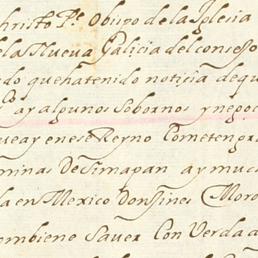 christo Pe. Obispo de la Iglesia
la Nueva Galicia del consejo
do que ha tenido noticia de qu
ay algunos Sobornos y negoc
ue ay en ese Reyno Cometen gra
minas de Simapan ay muc
la en Mexico Don Gines Moro
ombiene Saver Con Verdad